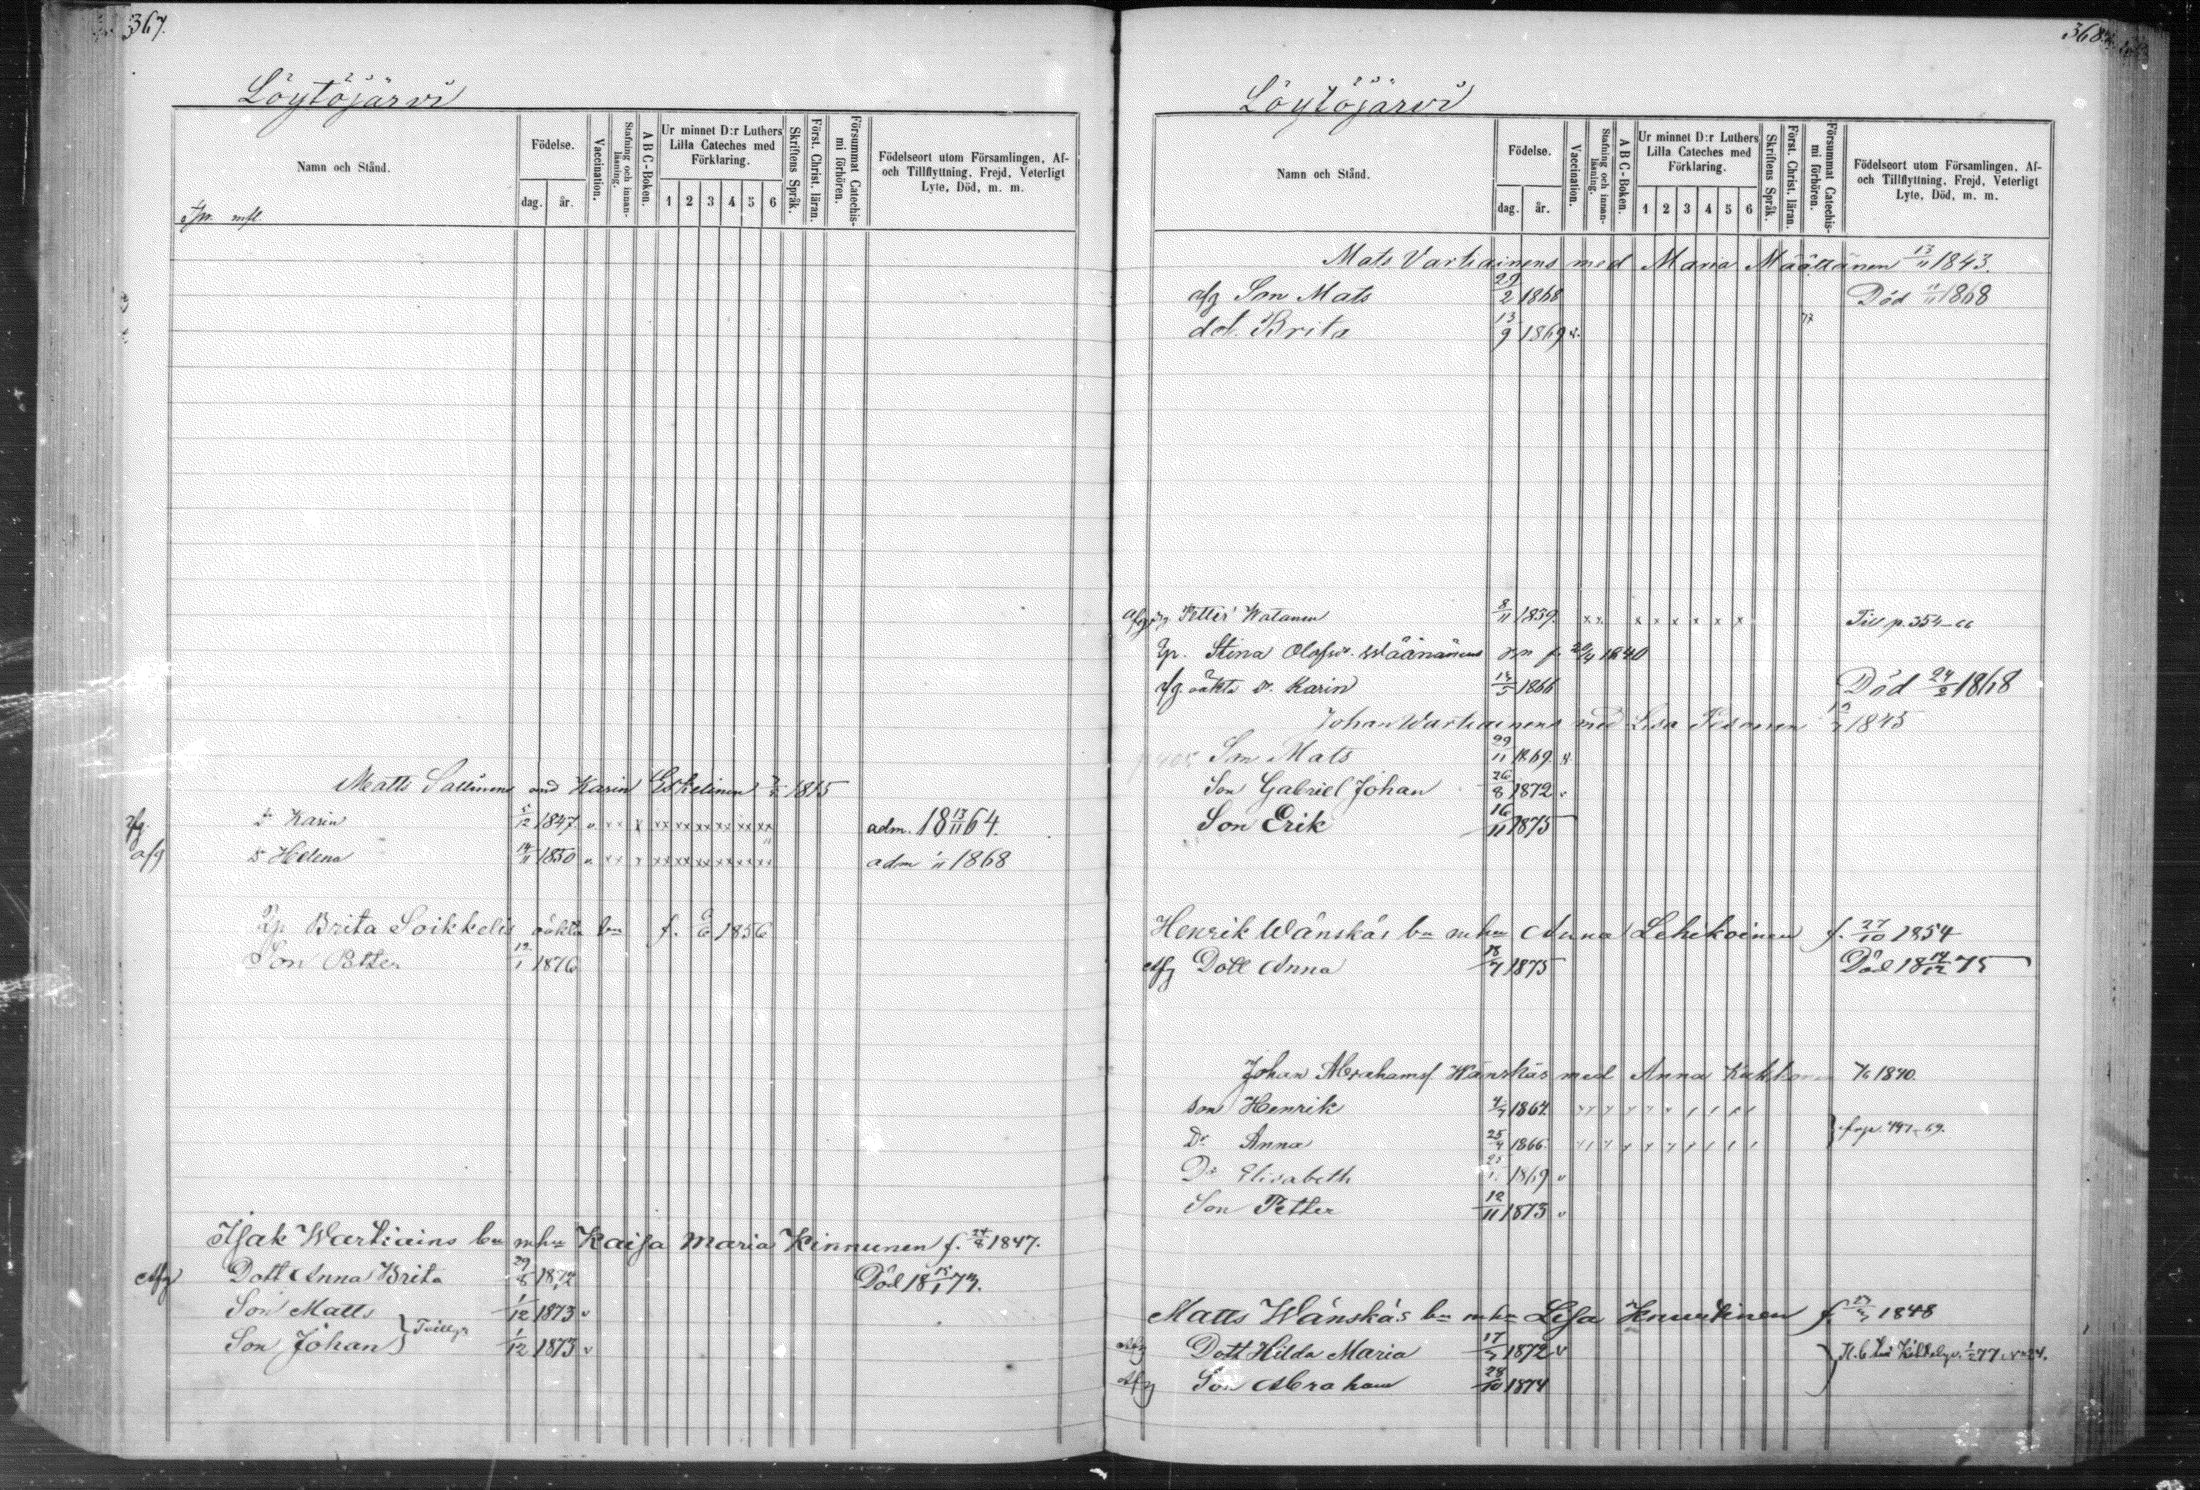 367.
Löytöjärvi
Namn och Stånd.
Födelse.
dag. år.
Vaccination.
Stafning och innanläsning.
ABC-Boken.
Ur minnet D:r Luthers Lilla Cateches med Förklaring.
1 2 3 4 5 6
Skriftens Språk.
Först. Christ. läran.
Försummat Catechismi förhören.
Födelseort utom Församlingen, Af- och Tillflyttning, Frejd, Veterligt Lyte, Död, m. m.
Matts Sallinens med Karin Eskelinen 1815
afg. Karin 5/12 1847 adm. 18 13/11 64.
afg D Helena 14/11 1850 adm 1/11 1868
Brita Soikkelis oäkta bn f. 1856
Son Petter 12/1 1876
Isak Wartiains bn mhu Kaisa Maria Kinnunen f. 24/8 1847.
Afg Dott Anna Brita 29/8 1872 Död 18 15/1 73.
Son Matts 1/12 1873
Son Johan } Tvillgr 1/12 1873
368.
Löytöjärvi
Namn och Stånd.
Födelse.
dag. år.
Vaccination.
Stafning och innanläsning.
ABC-Boken.
Ur minnet D:r Luthers Lilla Cateches med Förklaring.
1 2 3 4 5 6
Skriftens Språk.
Först. Christ. läran.
Försummat Catechismi förhören.
Födelseort utom Församlingen, Af- och Tillflyttning, Frejd, Veterligt Lyte, Död, m. m.
Mats Vartiainens med Maria Määttänen 13/11 1843.
afg Son Mats 29/2 1868 Död 11/11 1868
dot. Brita 13/9 1869
afg Petter Watanen 8/11 1839. x x x x x x x x Till p. 354
Stina Olofsd. Väänänens f. 20/4 1840
afg. oäkta D. Karin 1866 Död 24/2 1868
Johan Wartiainens med Lisa Pesonen 1845
Son Mats 29/11 1869.
Son Gabriel Johan 26/8 1872
Son Erik 16/11 1875
Henrik Wänskäs bn mhu Anna Lehikoinen f. 27/10 1854
Afg Dott Anna 18/7 1875 Död 18 14/12 75
Johan Abrahamss Wänskäs med Anna Kakkonen 1840.
Son Henrik 1864
Dr Anna 25/4 1866
Dr Elisabeth 1869
Son Petter 12/11 1873
Matts Wänskäs bn mhu Lisa Knuutinen f. 1848
Afg Dott Hilda Maria 17/7 1872
Afg Son Abraham 28/10 1874